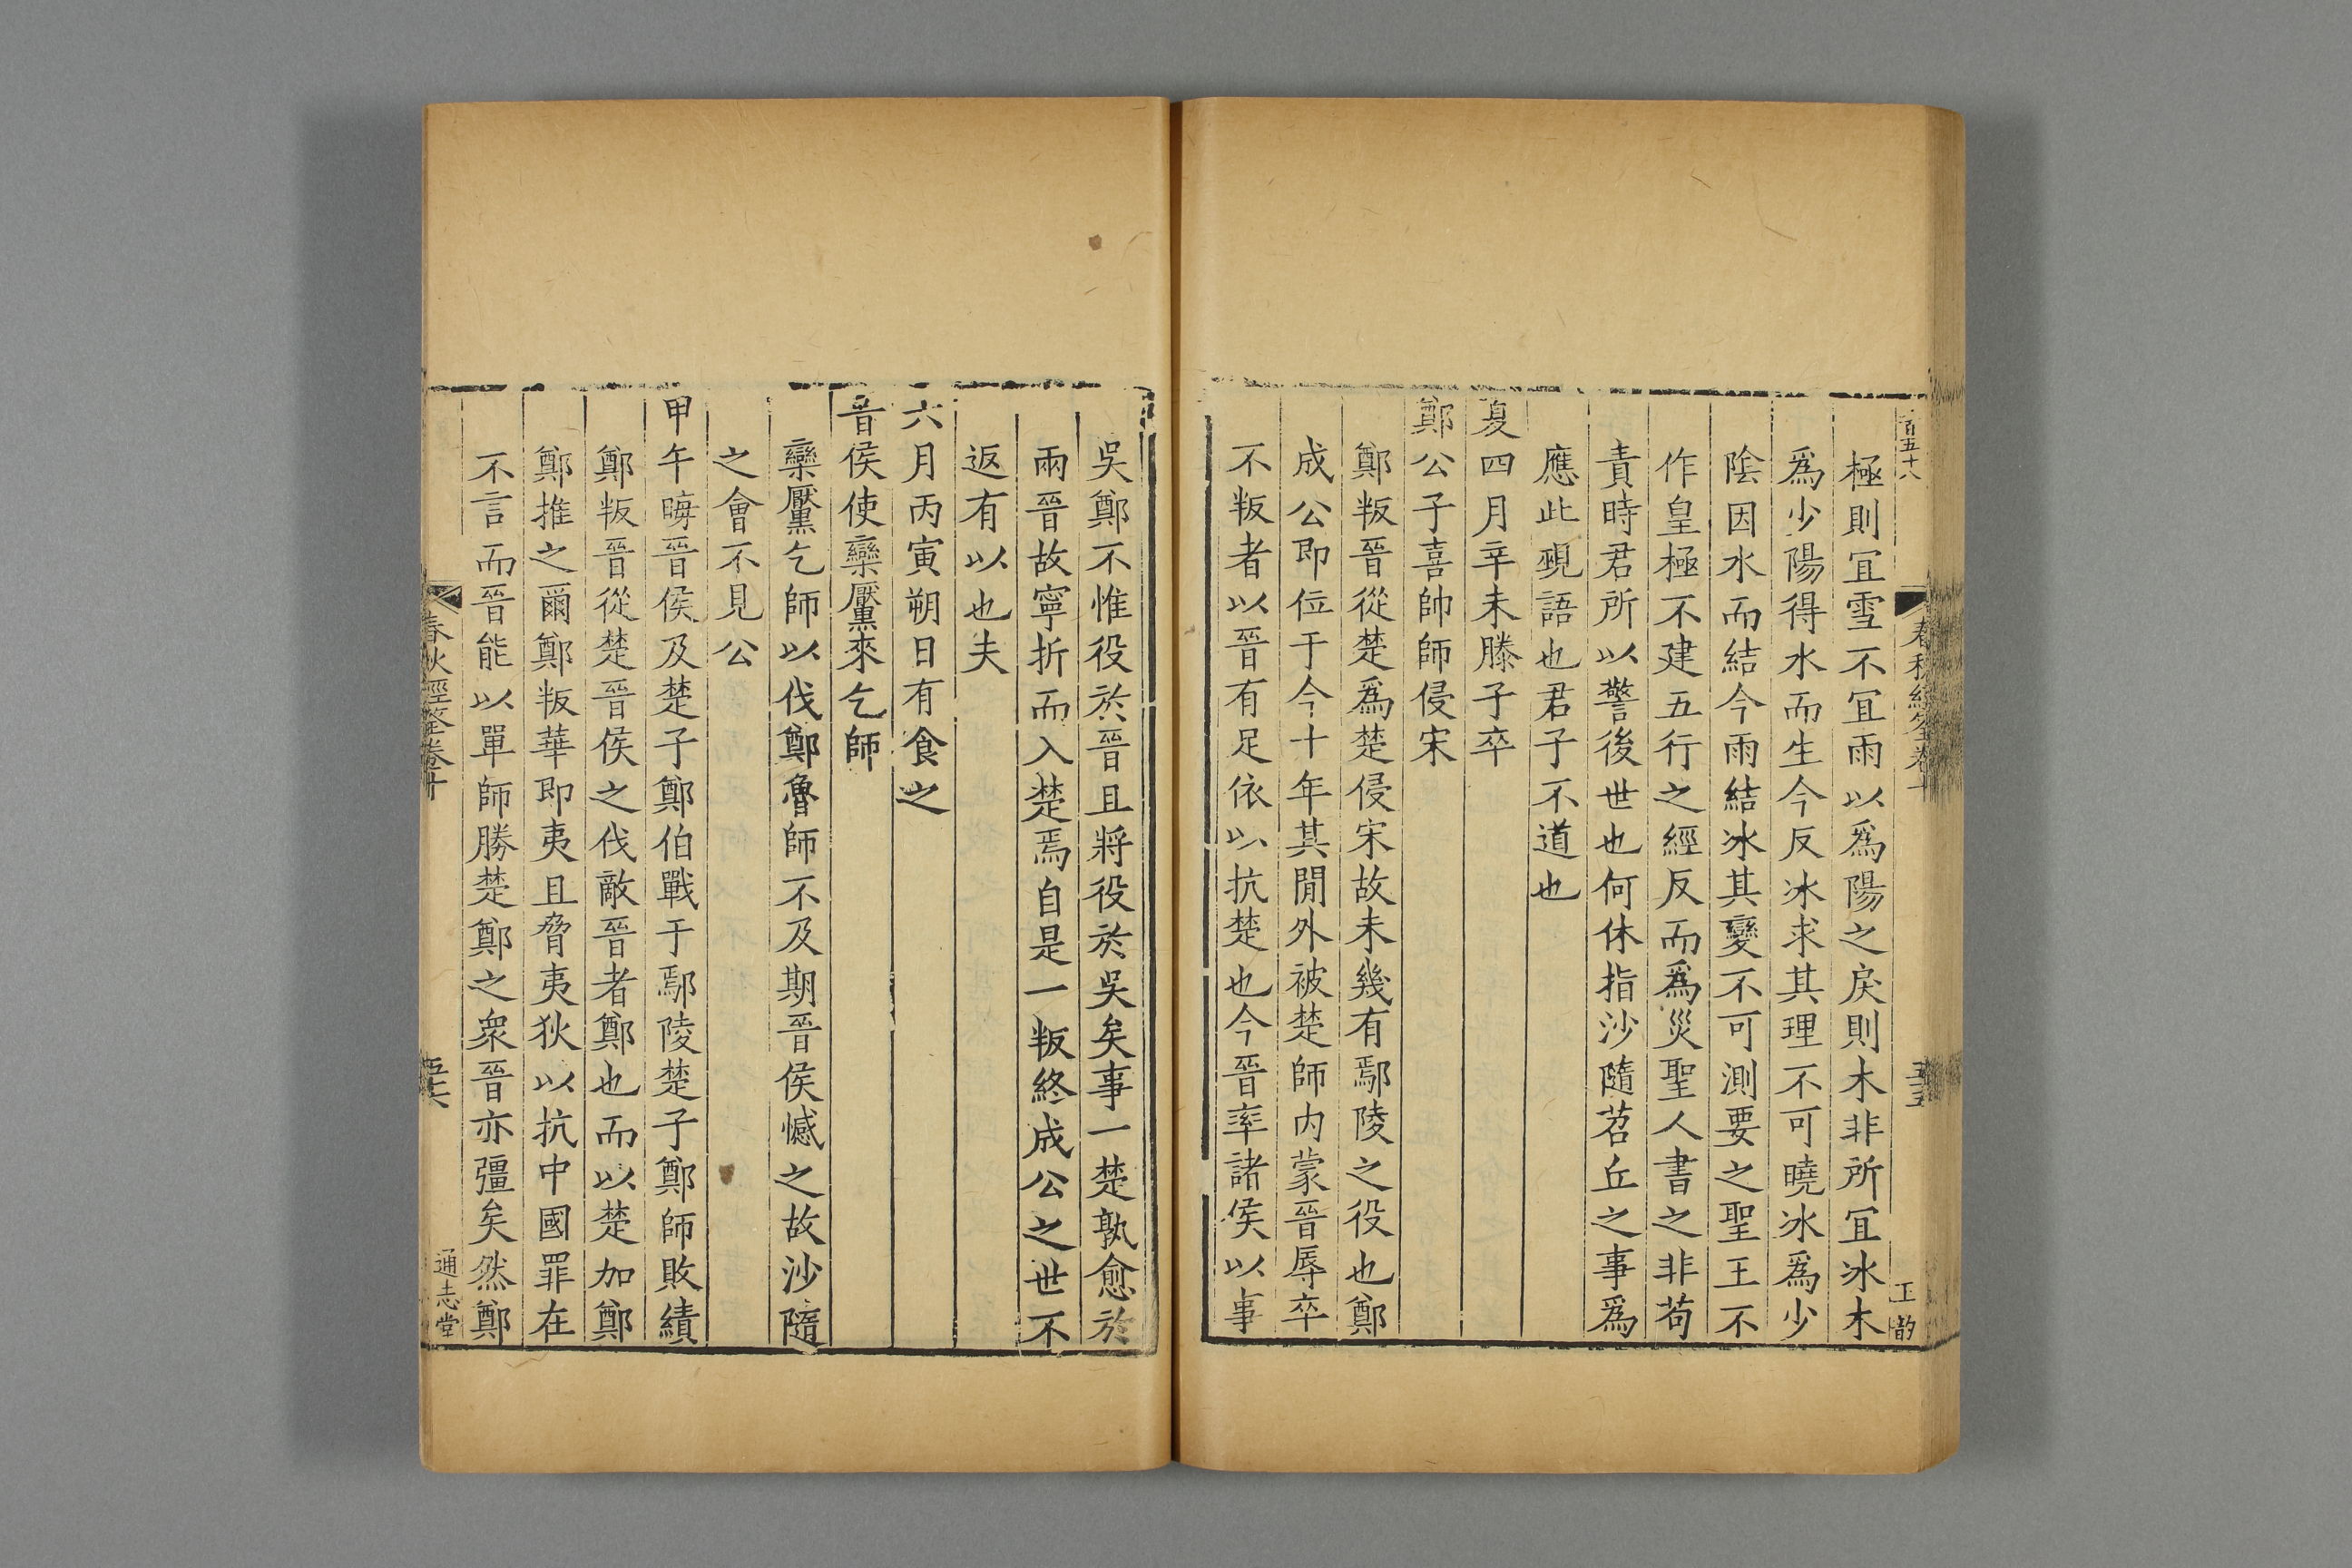 百五十八
春秋經筌卷十
五十五
王 韵
極則宜雪不宜雨以為陽之戾則木非所宜冰木
為少陽得水而生今反冰求其理不可曉冰為少
陰因水而結今雨結冰其變不可測要之聖王不
作皇極不建五行之經反而為災聖人書之非苟
責時君所以警後世也何休指沙隨苕丘之事為
應此覡語也君子不道也
夏四月辛未滕子卒
鄭公子喜帥師侵宋
鄭叛晉從楚為楚侵宋故未幾有鄢陵之役也鄭
成公即位于今十年其間外被楚師內蒙晉辱卒
不叛者以晉有足依以抗楚也今晉率諸侯以事
吳鄭不惟役於晉且將役於吳矣事一楚孰愈於
兩晉故寧折而入楚焉自是一叛終成公之世不
返有以也夫
六月丙寅朔日有食之
晉侯使欒黶來乞師
欒黶乞師以伐鄭魯師不及期晉侯憾之故沙隨
之會不見公
甲午晦晉侯及楚子鄭伯戰于鄢陵楚子鄭師敗績
鄭叛晉從楚晉侯之伐敵晉者鄭也而以楚加鄭
鄭推之爾鄭叛華即夷且脅夷狄以抗中國罪在
不言而晉能以單師勝楚鄭之衆晉亦彊矣然鄭
春秋經筌卷十
五十六
通志堂